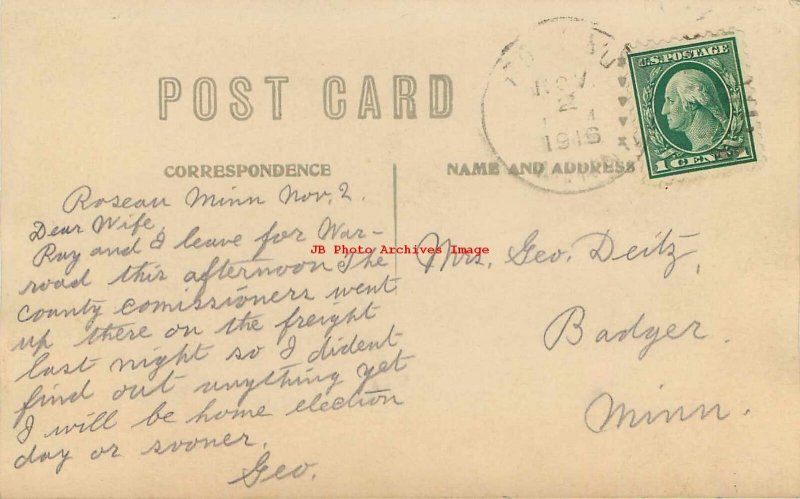 POST CARD
NOV
2
1916
U.S. POSTAGE
1 CENT 1
CORRESPONDENCE
NAME AND ADDRESS
Roseau Minn Nov. 2.
Dear Wife,
Ray and I leave for War-
road this afternoon The
county comissioners went
up there on the freight
last night so I dident
find out anything yet
I will be home election
day or sooner.
Geo.
JB Photo Archives Image
Mrs. Geo. Deitz,
Badger.
Minn.